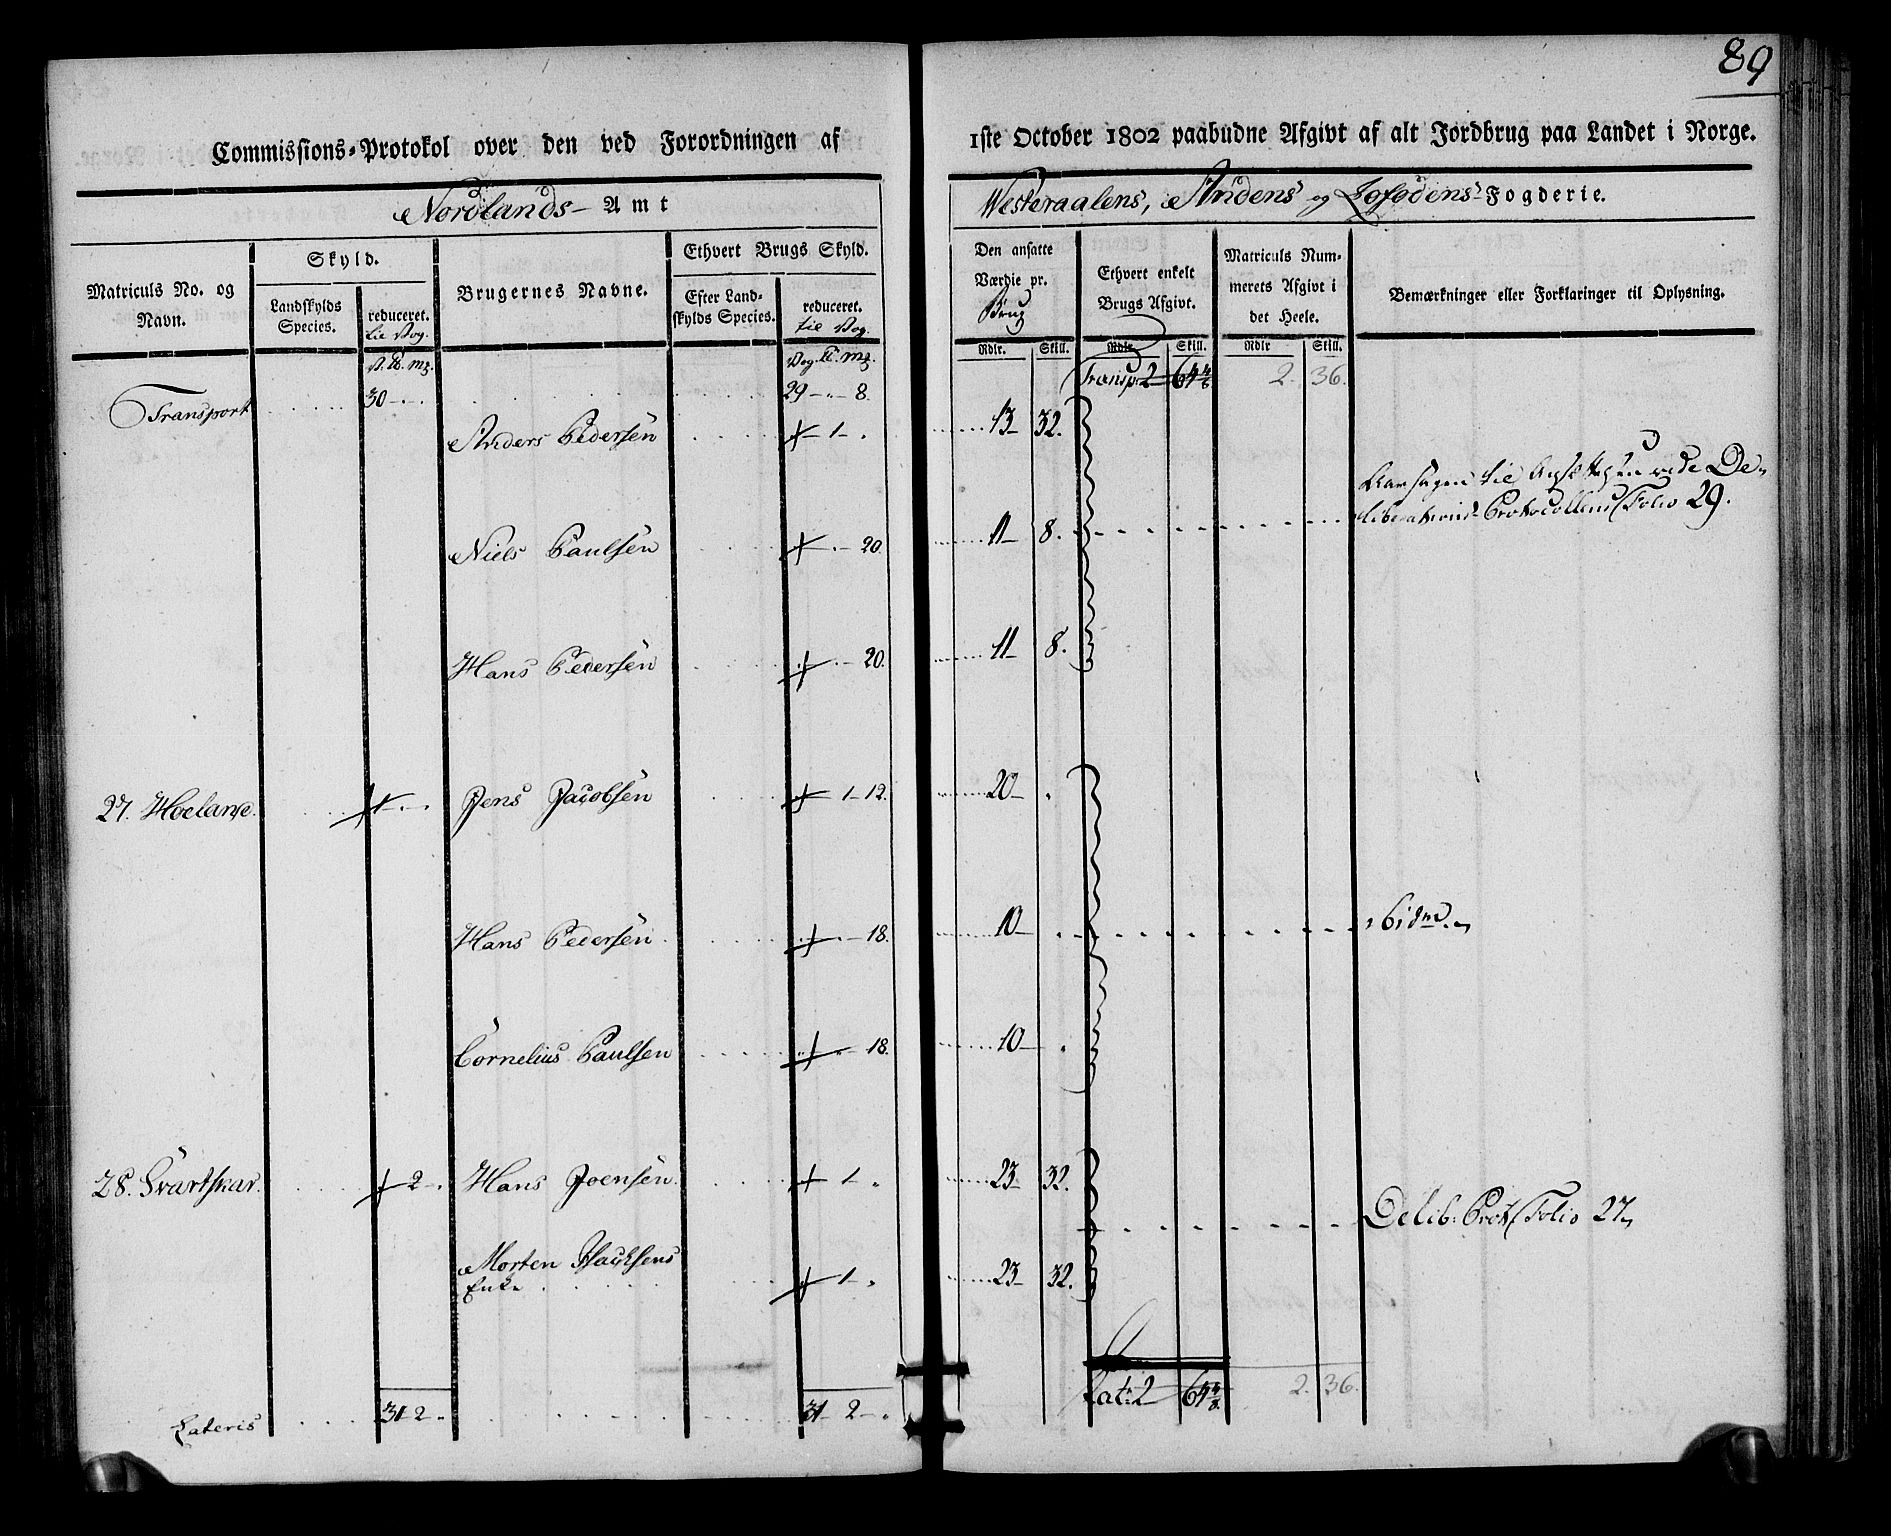 89
Commissions-Protokol over den ved Forordningen af 1ste October 1802 paabudne Afgivt af alt Jordbrug paa Landet i Norge.
Nordlands- Amt Westeraalens, Andens og Lofodens- Fogderie.
Matriculs No. og Navn.
Skyld.
Landskylds Species.
reduceret. til Vog.
Brugernes Navne.
Ethvert Brugs Skyld.
Efter Landskylds Species.
reduceret. til Vog.
Den ansatte Værdie pr. Brug
Ethvert enkelt Brugs Afgivt.
Matriculs Nummerets Afgivt i det Heele.
Bemærkninger eller Forklaringer til Oplysning.
Rdlr. Skill. Rdlr. Skill. Rdlr Skill.
V. ℔. mk. Vog. ℔. mk. Transp. 2 64 4/8 2. 36.
Transport 30 - . - . 29 - . - 8.
Anders Pedersen + 1 - . 13 32.
Aarsagen til Ansættelsen vide De-
liberations-Protocollens Folio 29.
Niels Paulsen + . - 20. 11 8.
Hans Pedersen + . - 20. 11 8.
27. Hoelane. + . - . Jens Jacobsen + 1 - 12. 20 .
Hans Pedersen + . - 18. 10 . ibidm.
Cornelius Paulsen + . - 18. 10 .
28. Svartskar. + 2 - . Hans Joensen + 1 . 23 32.
Delib: Prot: Folio 27
Morten Isachsens
Enke + 1 . 23 32.
Lateris 31 2 . 31 - 2 - . Lat: 2 64 4/8 2. 36.